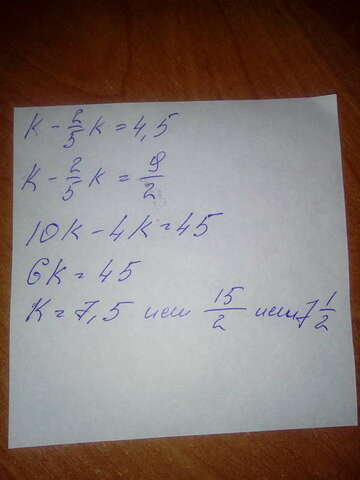 K - 2/5 K = 4,5
K - 2/5 K = 9/2
10K - 4K = 45
6K = 45
K = 7,5 или 15/2 или 7 1/2